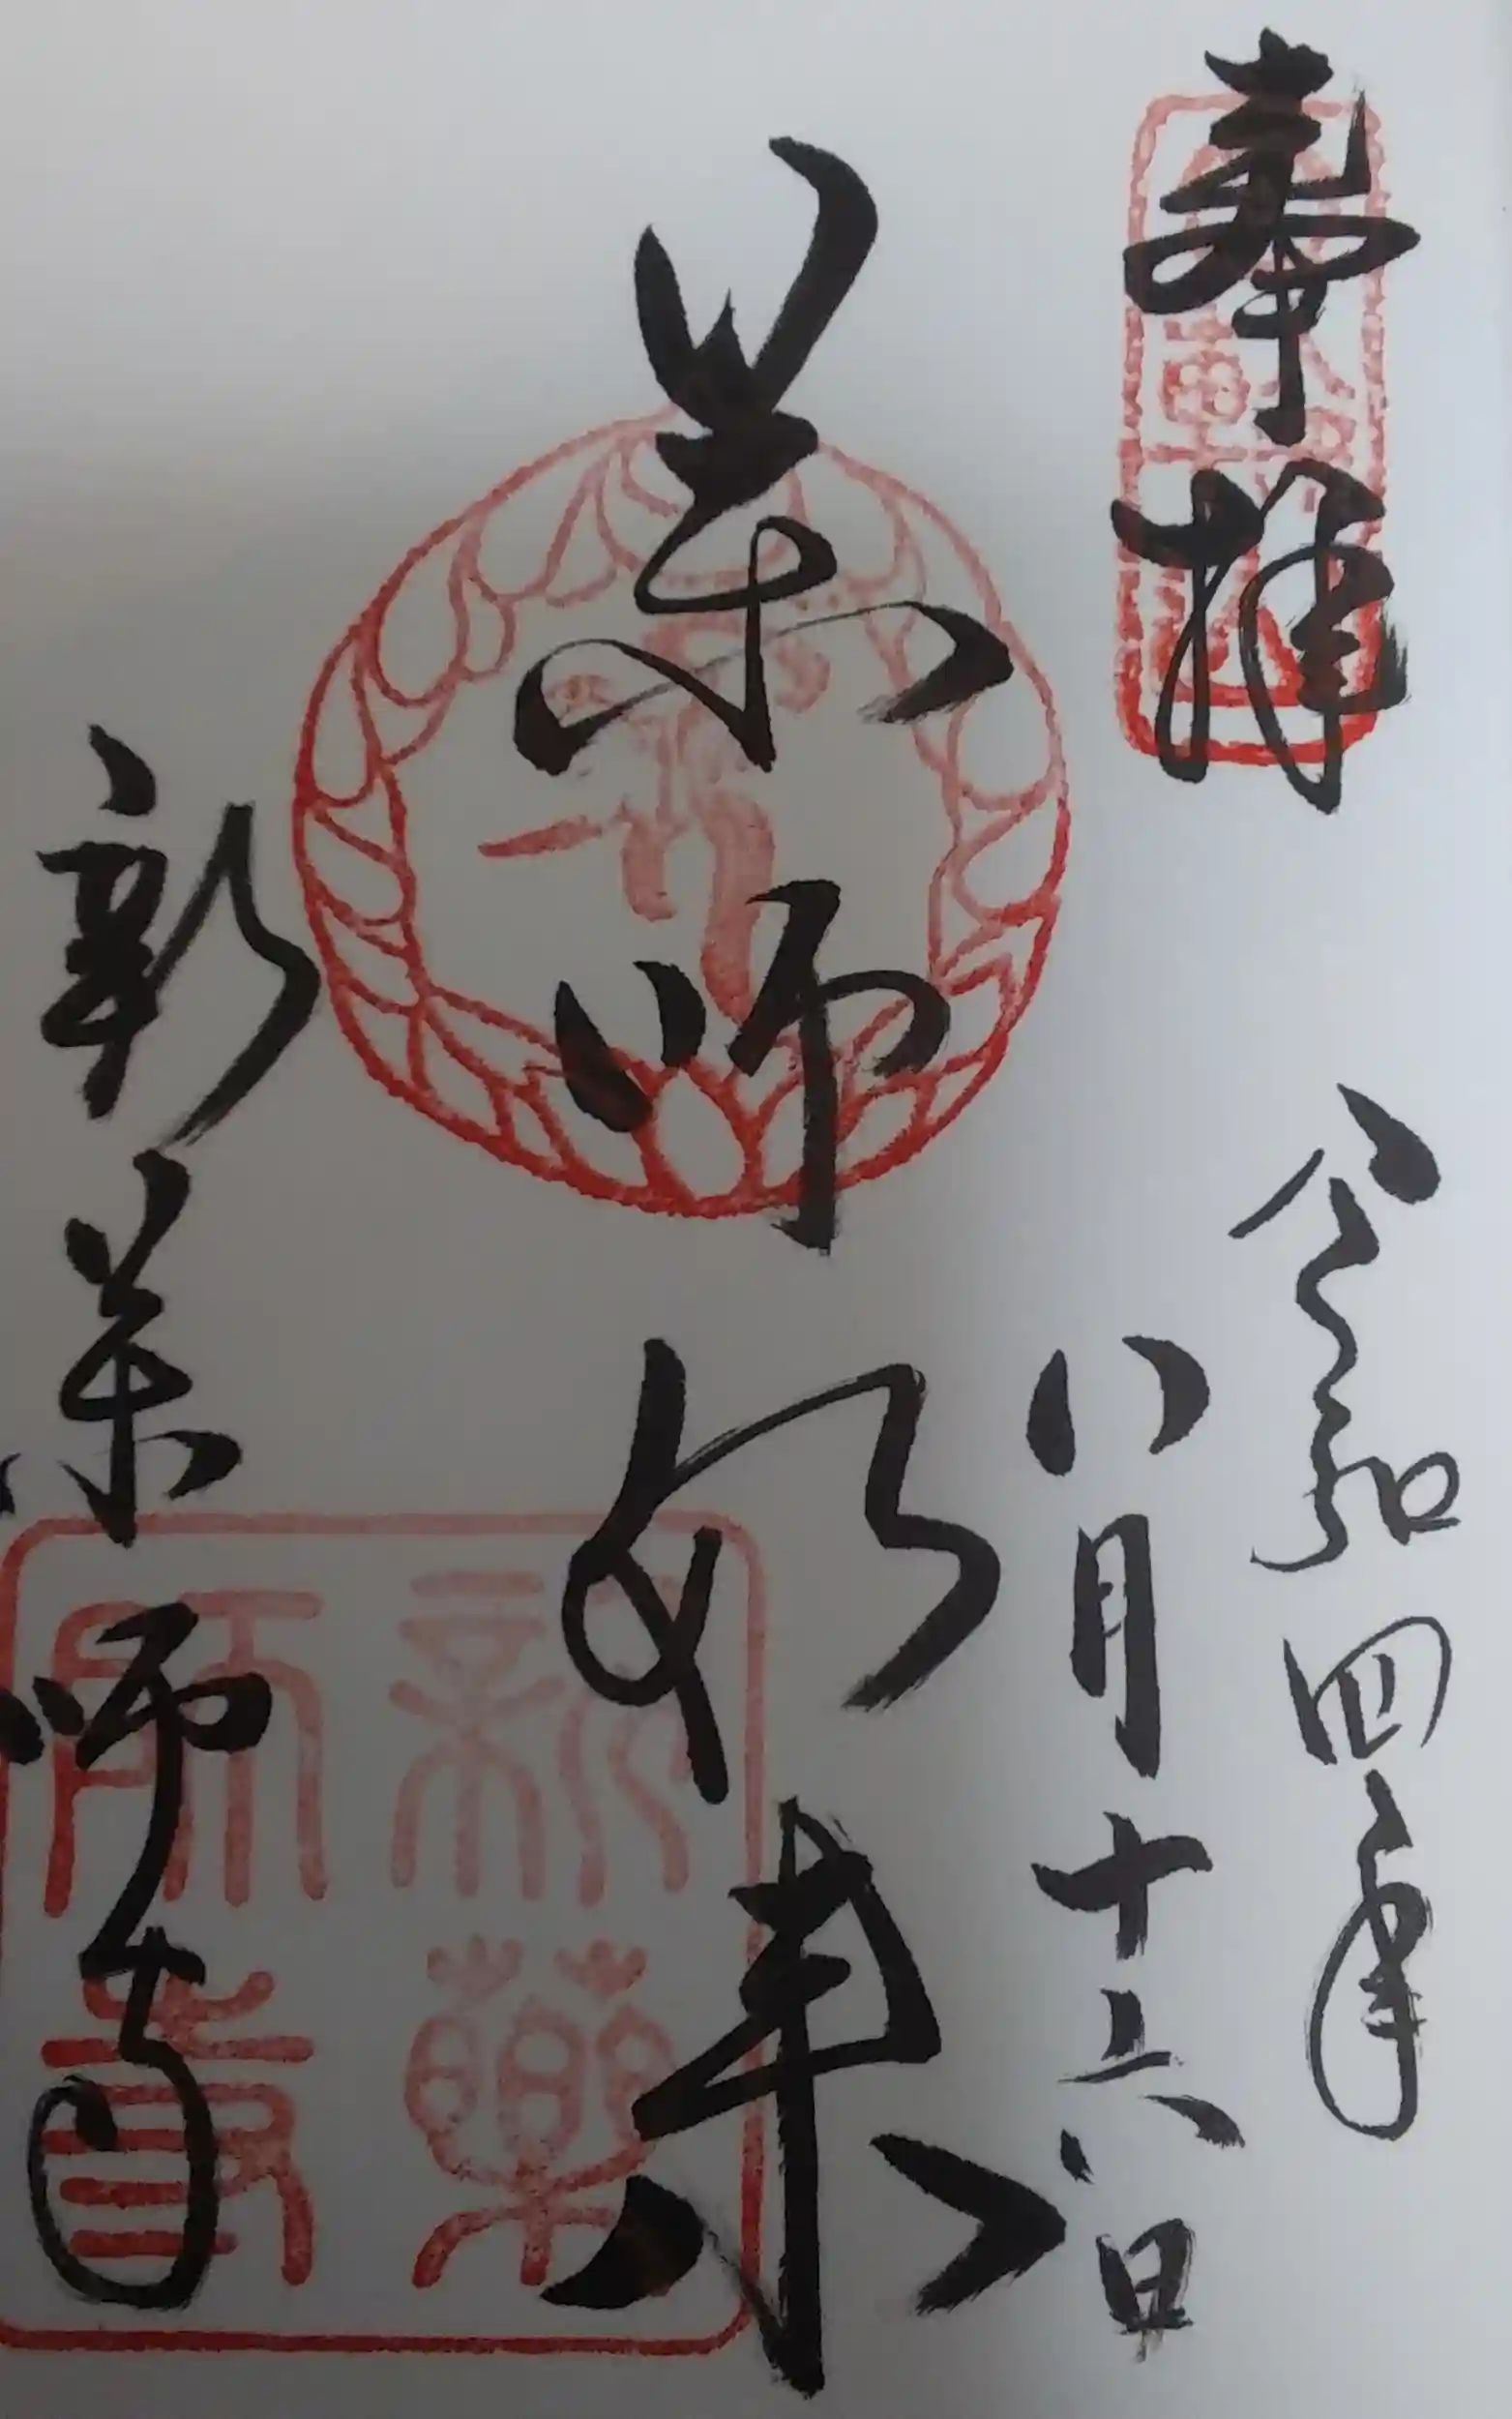 奉拝
令和四年
八月十六日
薬師如来
新薬師寺
新薬師寺